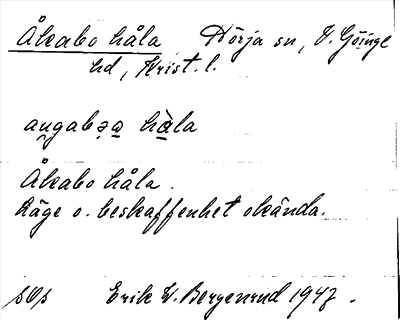 Åkabo håla Dörja sn, V. Göinge
hd, Krist. l.
aŋgabə̣a hàla
Åkabo håla.
Läge o. beskaffenhet okända.
Erik W. Bergenrud 1947.